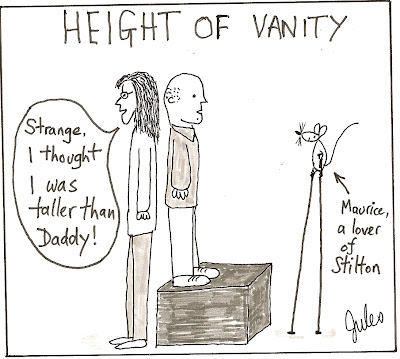 HEIGHT OF VANITY
Strange,
I thought
I was
taller than
Daddy!
Maurice,
a lover
of
Stilton
Jules